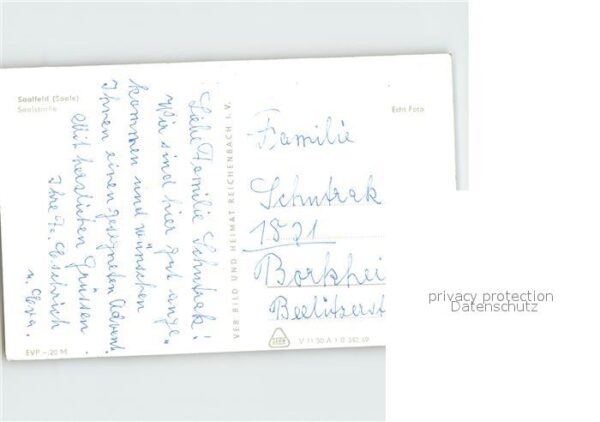 Saalfeld (Saale)
Saalstraße
Liebe Familie Schutrak!
Wir sind hier gut ange-
kommen und wünschen
Ihnen einen gesegneten Advent.
Mit herzlichen Grüssen
Ihre Fr.
u. Eva.
EVP -,20 M
VEB BILD UND HEIMAT REICHENBACH I. V.
Echt Foto
Familie
Schutrak
1521
Borkhei
Beelitzerst
V 11 50 A 1 B
privacy protection
Datenschutz